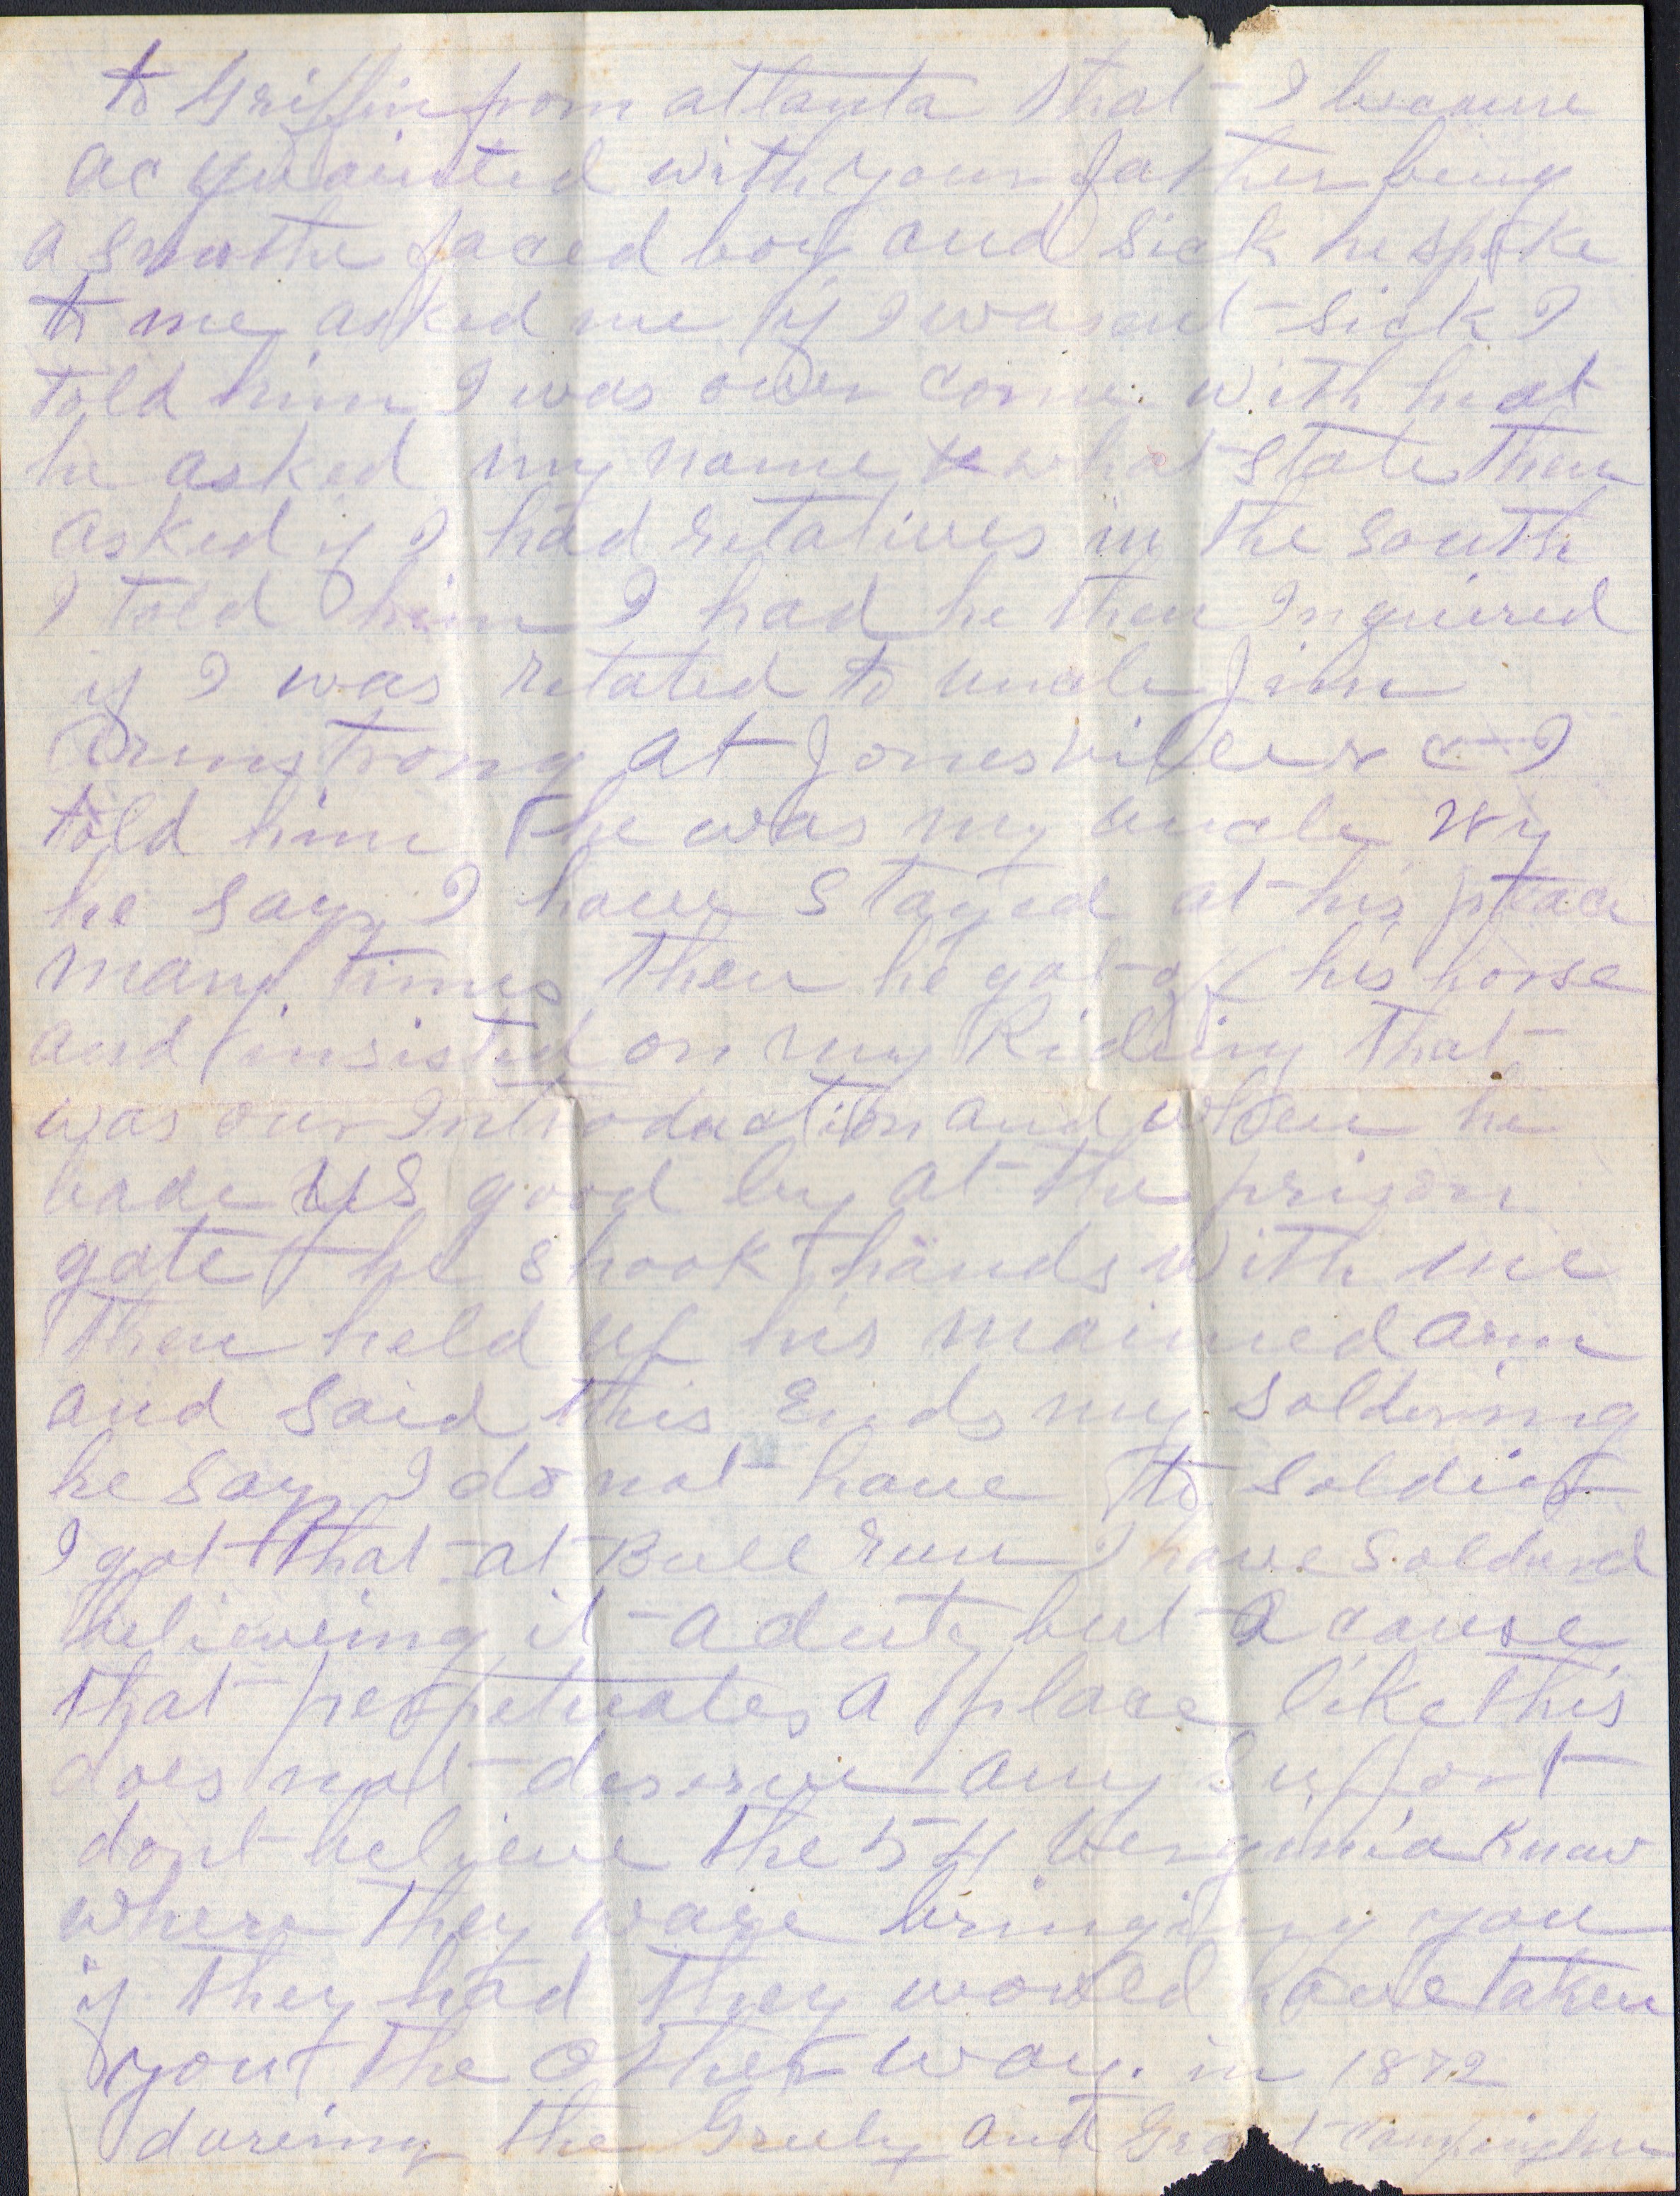 to Griffin from attanta that I became
acquainted with your father being
a smothe faced boy and sick he spoke
to me asked me if I wasent sick I
told him I was over come with heat
he asked my name & what state then
asked if I had retatives in the south
I told him I had he then Inquired
if I was retated to uncle Jim
Armstrong at Jonesvile &c I
told him he was my uncle Wy
he says I have stayed at his place
many times then he got off his horse
and insisted on my Riding that
was our Introduction and when he
bade us good by at the prison
gate he shook hands with me
then held up his maimed arm
and said this Ends my soldering
he says I do not have to soldier
I got that at Bull run I have soldered
believeing it a duty but a cause
that perpetuates a place like this
does not deserve any support
dont believe the 54 Verginia knew
where they ware bringing you
if they had they would have taken
you the other way. in 1872
dureing the Greely and Grant